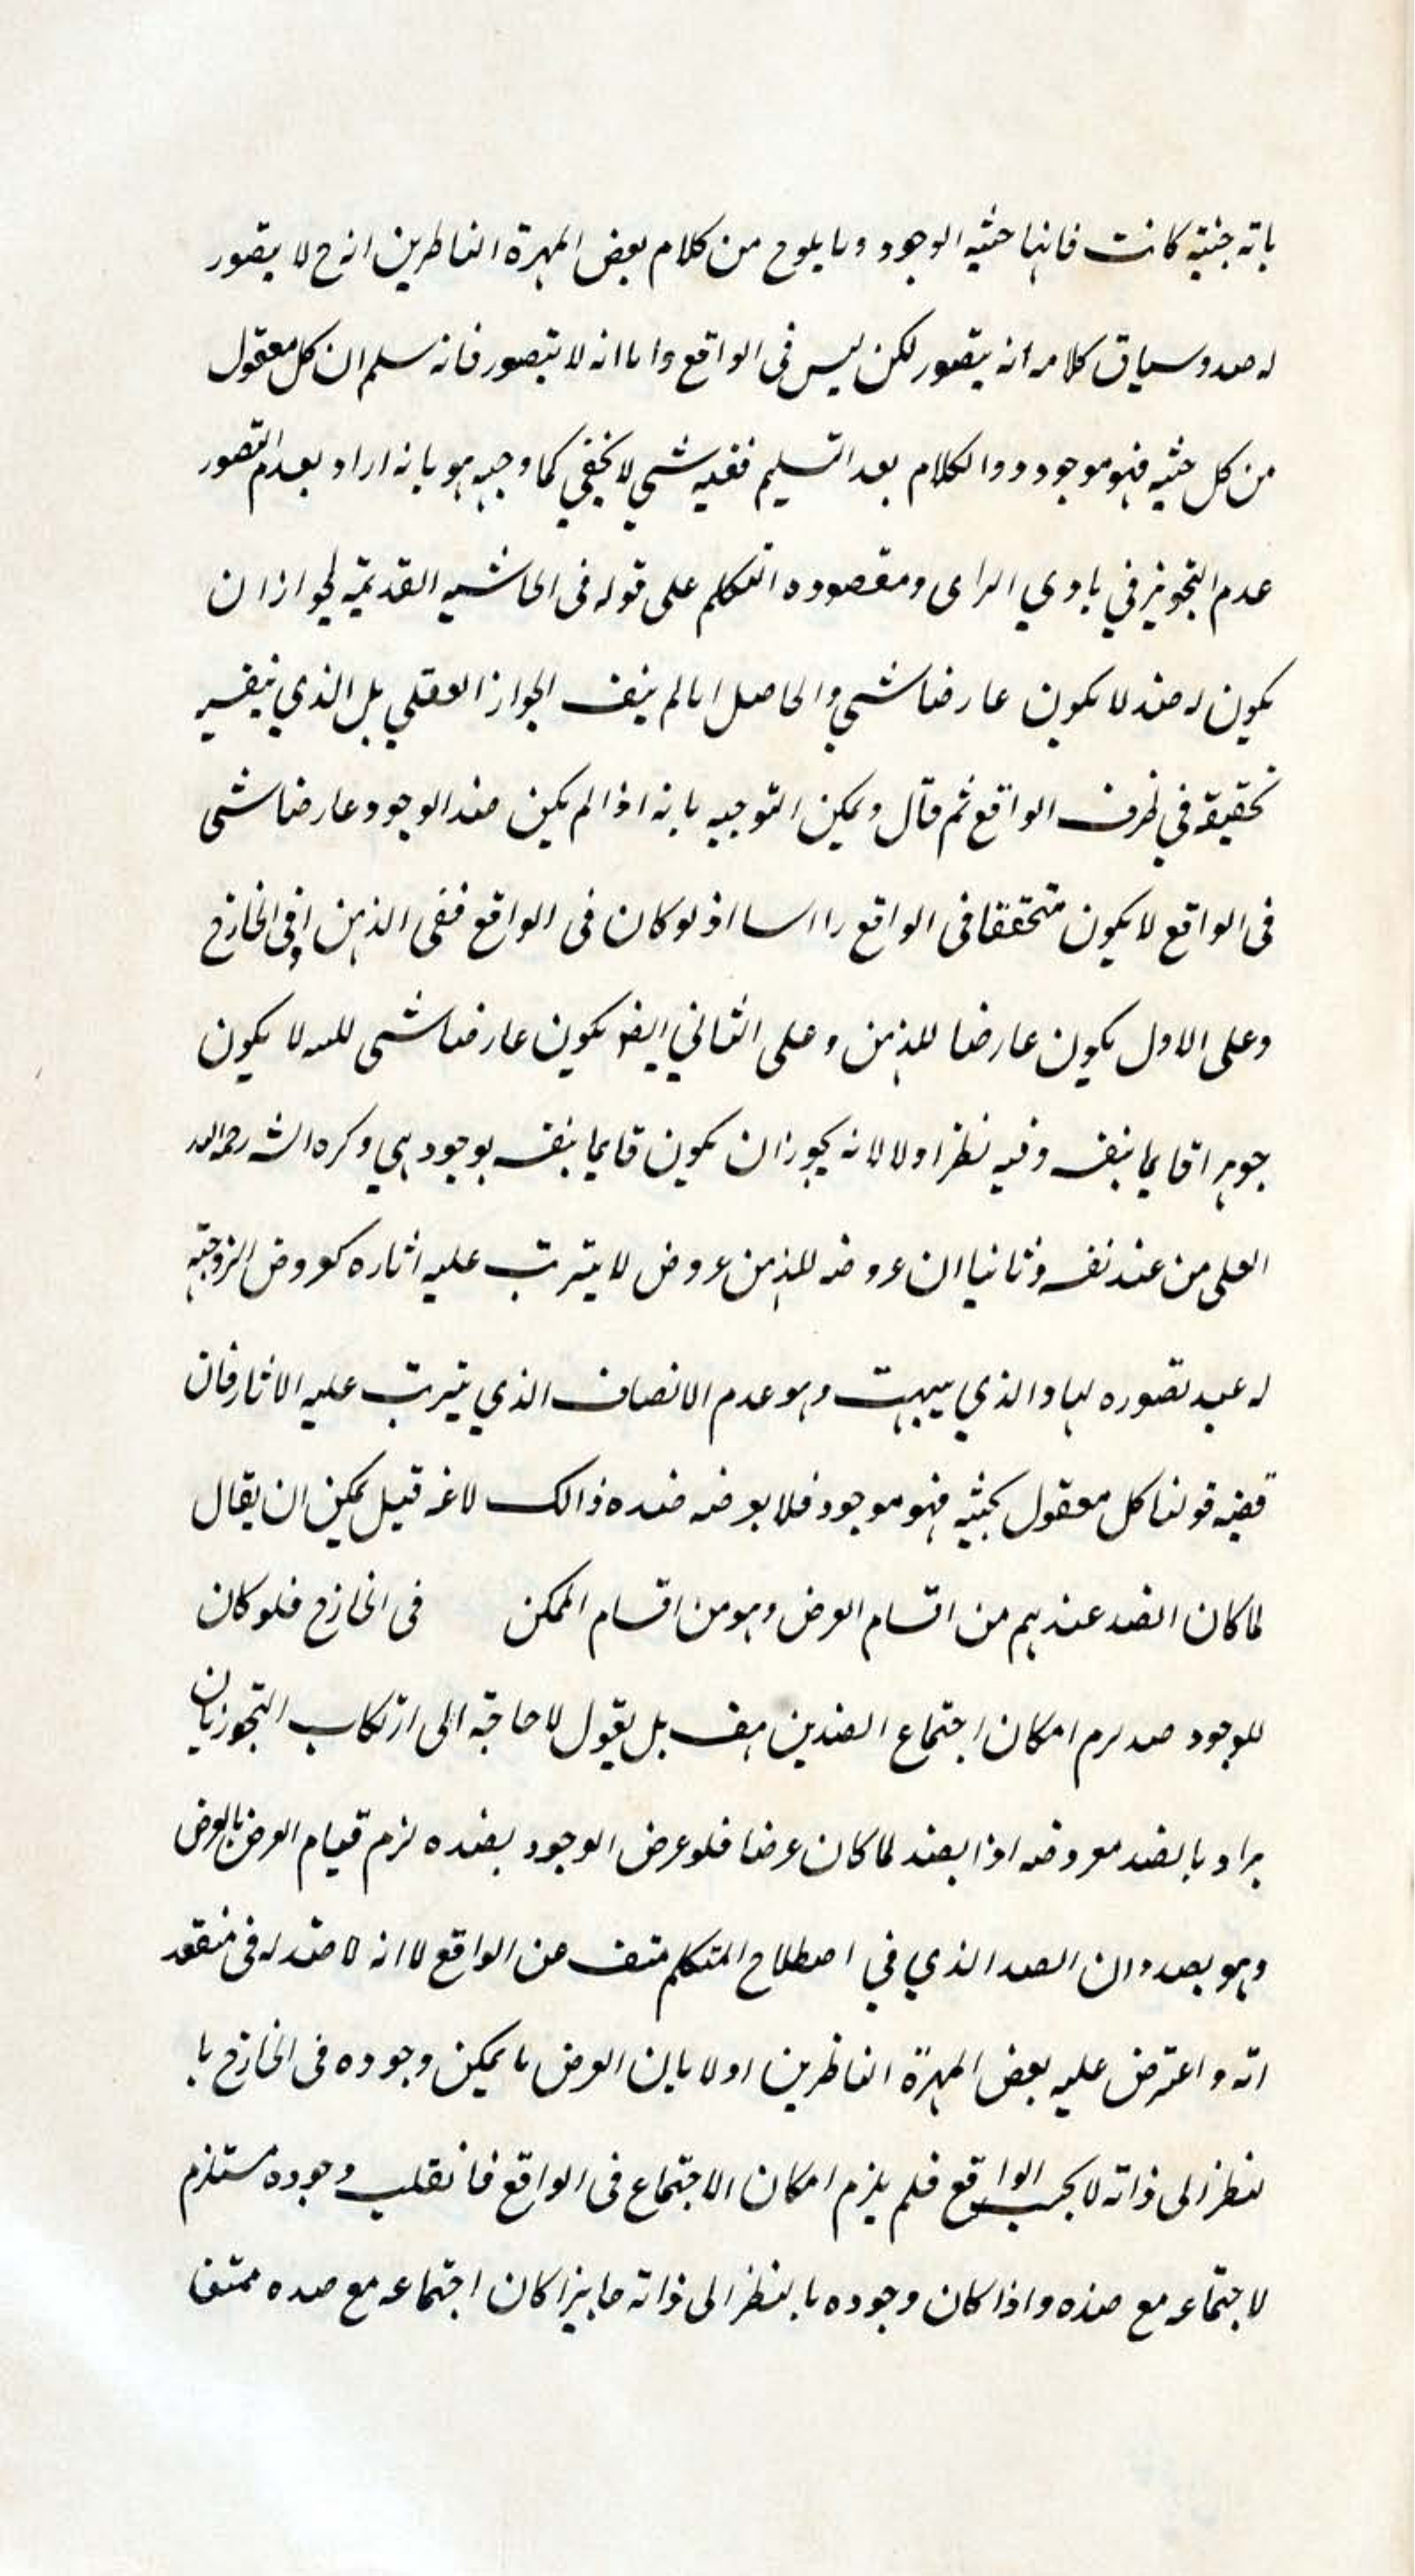 باته حثیته كانت فانها حثیه الوجود وما يلوح من كلام بعض المهرة الناظرين انه ح لا يتصور
له ضد وسياق كلامه انه يتصور لكن ليس فى الواقع واما انه لا يتصور فانه سلم ان كل معقول
من كل حثيه فهو موجود ووالكلام بعد التسليم ففيه شئ لا يخفي كما وجهه هو بانه اراد بعدم التصور
عدم التجويز في بادي الراى ومقصوده التكلم على قوله فى الحاشيه القديمة لجواز ان
يكون له ضد لا يكون عارضا شئ والحاصل انا لم ينف الجواز العقلي بل الذي ينفيه
تحقيقه في ظرف الواقع ثم قال ويمكن التوجيه بانه اذا لم يكن ضد الوجود عارضا شئ
فى الواقع لا يكون متحققا فى الواقع رااسا اذ لو كان فى الواقع ففى الذهن او فى الخارج
وعلى الاول يكون عارضا للذهن وعلى الثاني ايضا يكون عارضا شئ لا يكون
جوهرا قايما بنفسه وفيه نظر اولا لانه يجوز ان يكون قايما بنفسه بوجود هي ذكره الشه رحمه الله
العلى من عند نفسه وثانيا ان عروضه للذهن عروض لا يترتب عليه اثاره كعروض الزوجية
له عند تصوره لها والذي وهو عدم الاتصاف الذي يترتب عليه الاثار فان
قضيه قولنا كل معقول بحثيه فهو موجود فلا يعرضه ضده ذالك لاغه قيل يمكن ان يقال
لما كان الضد عندهم من اقسام العرض وهو من اقسام الممكن فى الخارج فلو كان
للوجود ضد لزم امكان اجتماع الضدين هف بل يقول لا حاجة الى ارتكاب التجوز بان
يراد بالضد معروضه اذا لضد لما كان عرضا فلو عرض الوجود بضده لزم قيام العرض بالعرض
وهو بصدد ان الضد الذي في اصطلاح المتكلم منتف عن الواقع لا انه لا ضد له فى
انه واعترض عليه بعض المهرة الناظرين اولا بان العرض ما يمكن وجوده فى الخارج با
لنظر الى ذاته لا بحسب الواقع فلم يلزم امكان الاجتماع فى الواقع فانقلب وجوده مستلزم
لاجتماعه مع ضده واذا كان وجوده بالنظر الى ذاته جايزا كان اجتماعه مع ضده